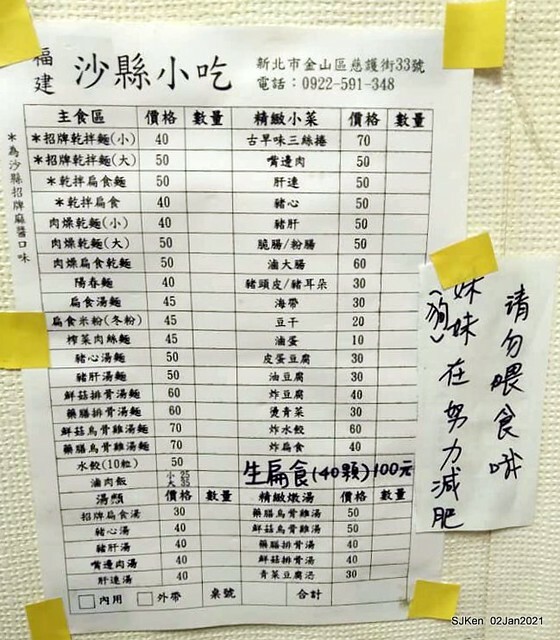 福建 沙縣小吃
新北市金山區慈護街33號
電話：0922-591-348
*為沙縣招牌麻醬口味
主食區 價格 數量 精緻小菜 價格 數量
*招牌乾拌麵(小) 40 古早味三絲捲 70
*招牌乾拌麵(大) 50 嘴邊肉 50
*乾拌扁食麵 50 肝連 50
*乾拌扁食 40 豬心 50
肉燥乾麵(小) 40 豬肝 50
肉燥乾麵(大) 50 脆腸/粉腸 50
肉燥扁食乾麵 50 滷大腸 60
陽春麵 40 豬頭皮/豬耳朵 30
扁食湯麵 45 海帶 30
扁食米粉(冬粉) 45 豆干 20
榨菜肉絲麵 45 滷蛋 10
豬心湯麵 50 皮蛋豆腐 30
豬肝湯麵 50 油豆腐 30
鮮菇排骨湯麵 60 炸豆腐 40
藥膳排骨湯麵 60 燙青菜 30
鮮菇烏骨雞湯麵 70 炸水餃 60
藥膳烏骨雞湯麵 70 炸扁食 40
水餃(10粒) 50 生扁食(40顆)100元
滷肉飯 小25 大35
湯類 價格 數量 精緻燉湯 價格 數量
招牌扁食湯 30 藥膳烏骨雞湯 50
豬心湯 40 鮮菇烏骨雞湯 50
豬肝湯 40 藥膳排骨湯 40
嘴邊肉湯 40 鮮菇排骨湯 40
肝連湯 40 青菜豆腐湯 30
內用 外帶 桌號 合計
請勿喂食哦
妹妹(狗)在努力減肥
SJKen 02Jan2021